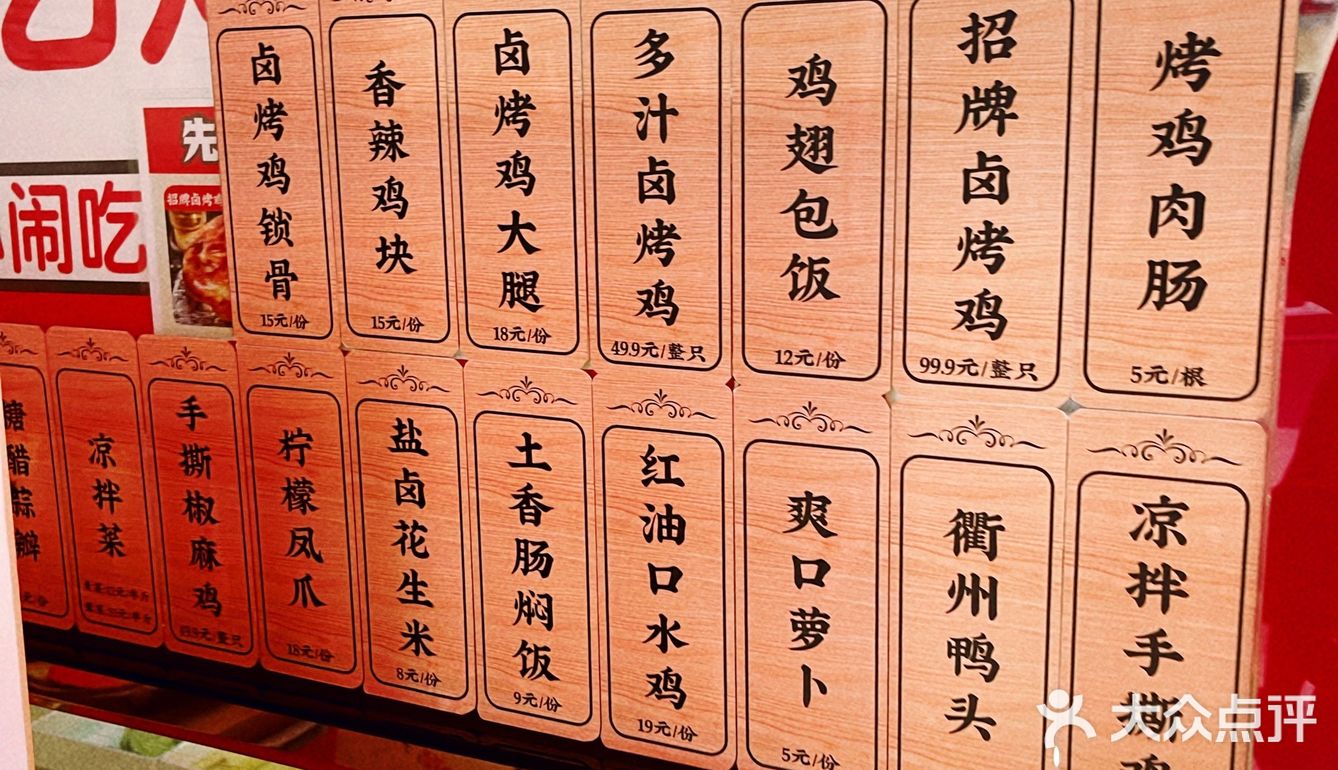 闹吃
先
招牌卤烤鸡
卤烤鸡锁骨
15元/份
香辣鸡块
15元/份
卤烤鸡大腿
18元/份
多汁卤烤鸡
49.9元/整只
鸡翅包饭
12元/份
招牌卤烤鸡
99.9元/整只
烤鸡肉肠
5元/根
糖醋蒜瓣
元/份
凉拌菜
手撕椒麻鸡
元/整只
柠檬凤爪
18元/份
盐卤花生米
8元/份
土香肠焖饭
9元/份
红油口水鸡
19元/份
爽口萝卜
5元/份
衢州鸭头
凉拌手撕鸡
大众点评